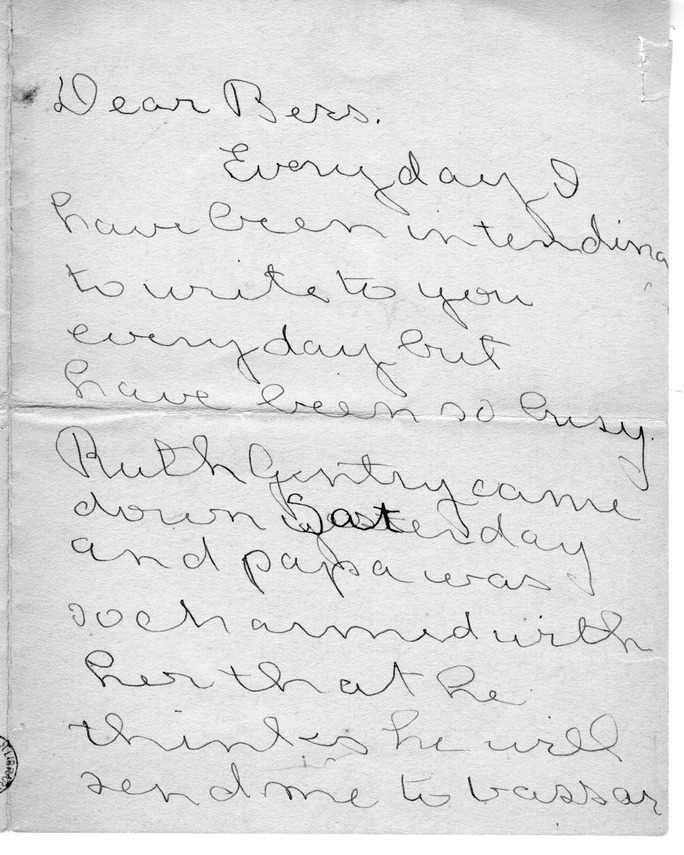 Dear Bess.
Everyday I
have been intending
to write to you
everyday but
have been so busy.
Ruth Gentry came
down Saterday
and papa was
so charmed with
her that he
thinks he will
send me to vassar